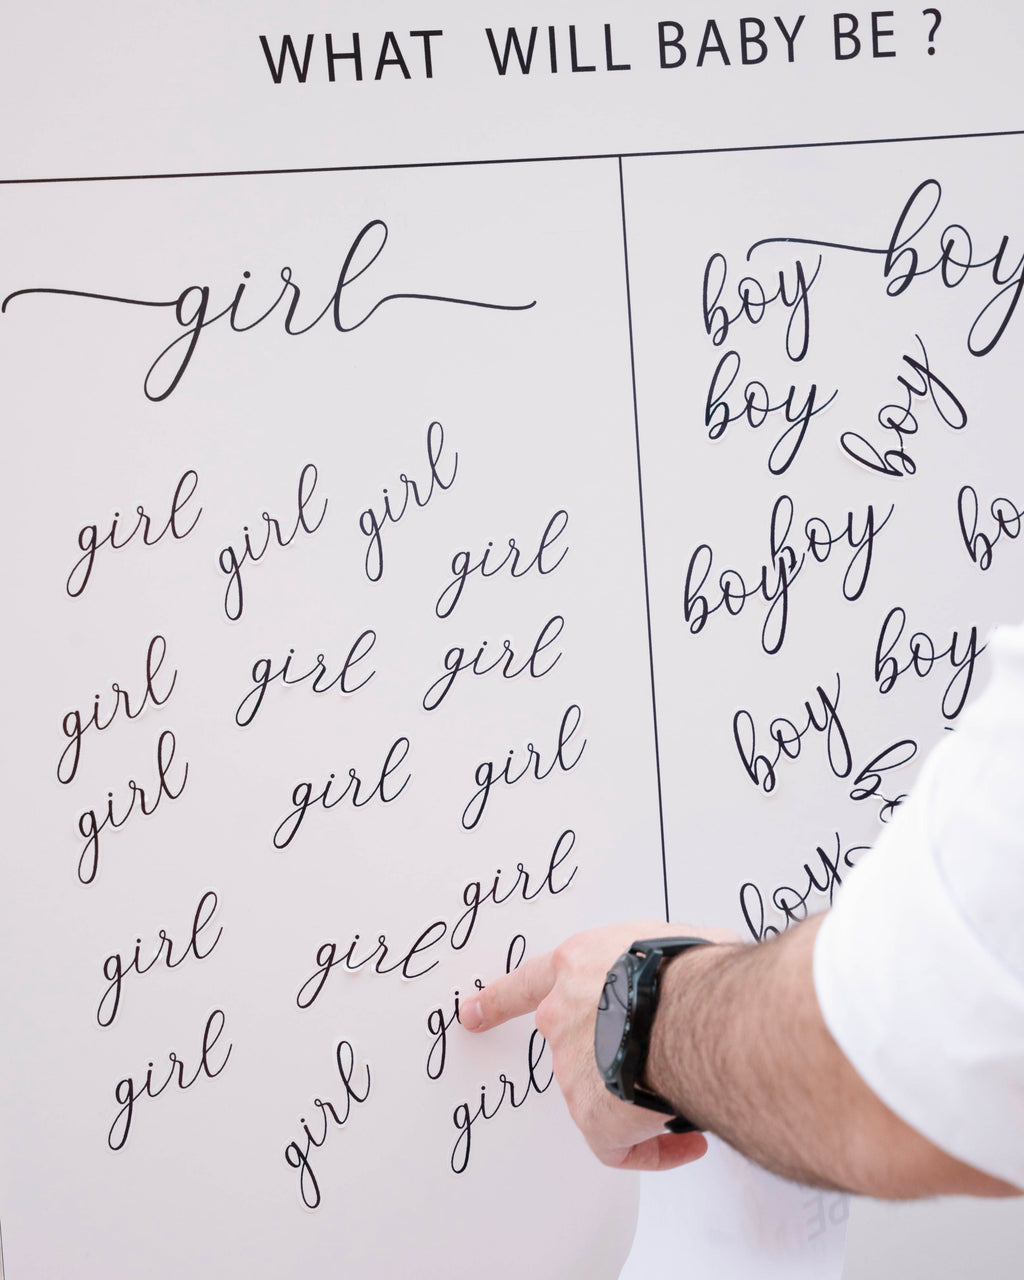 WHAT WILL BABY BE ?
girl
girl girl girl
girl
girl girl girl
girl girl girl
girl
girl girl
girl
girl girl
boy
boy
boy boy
boy
boy
boy
boy
boy